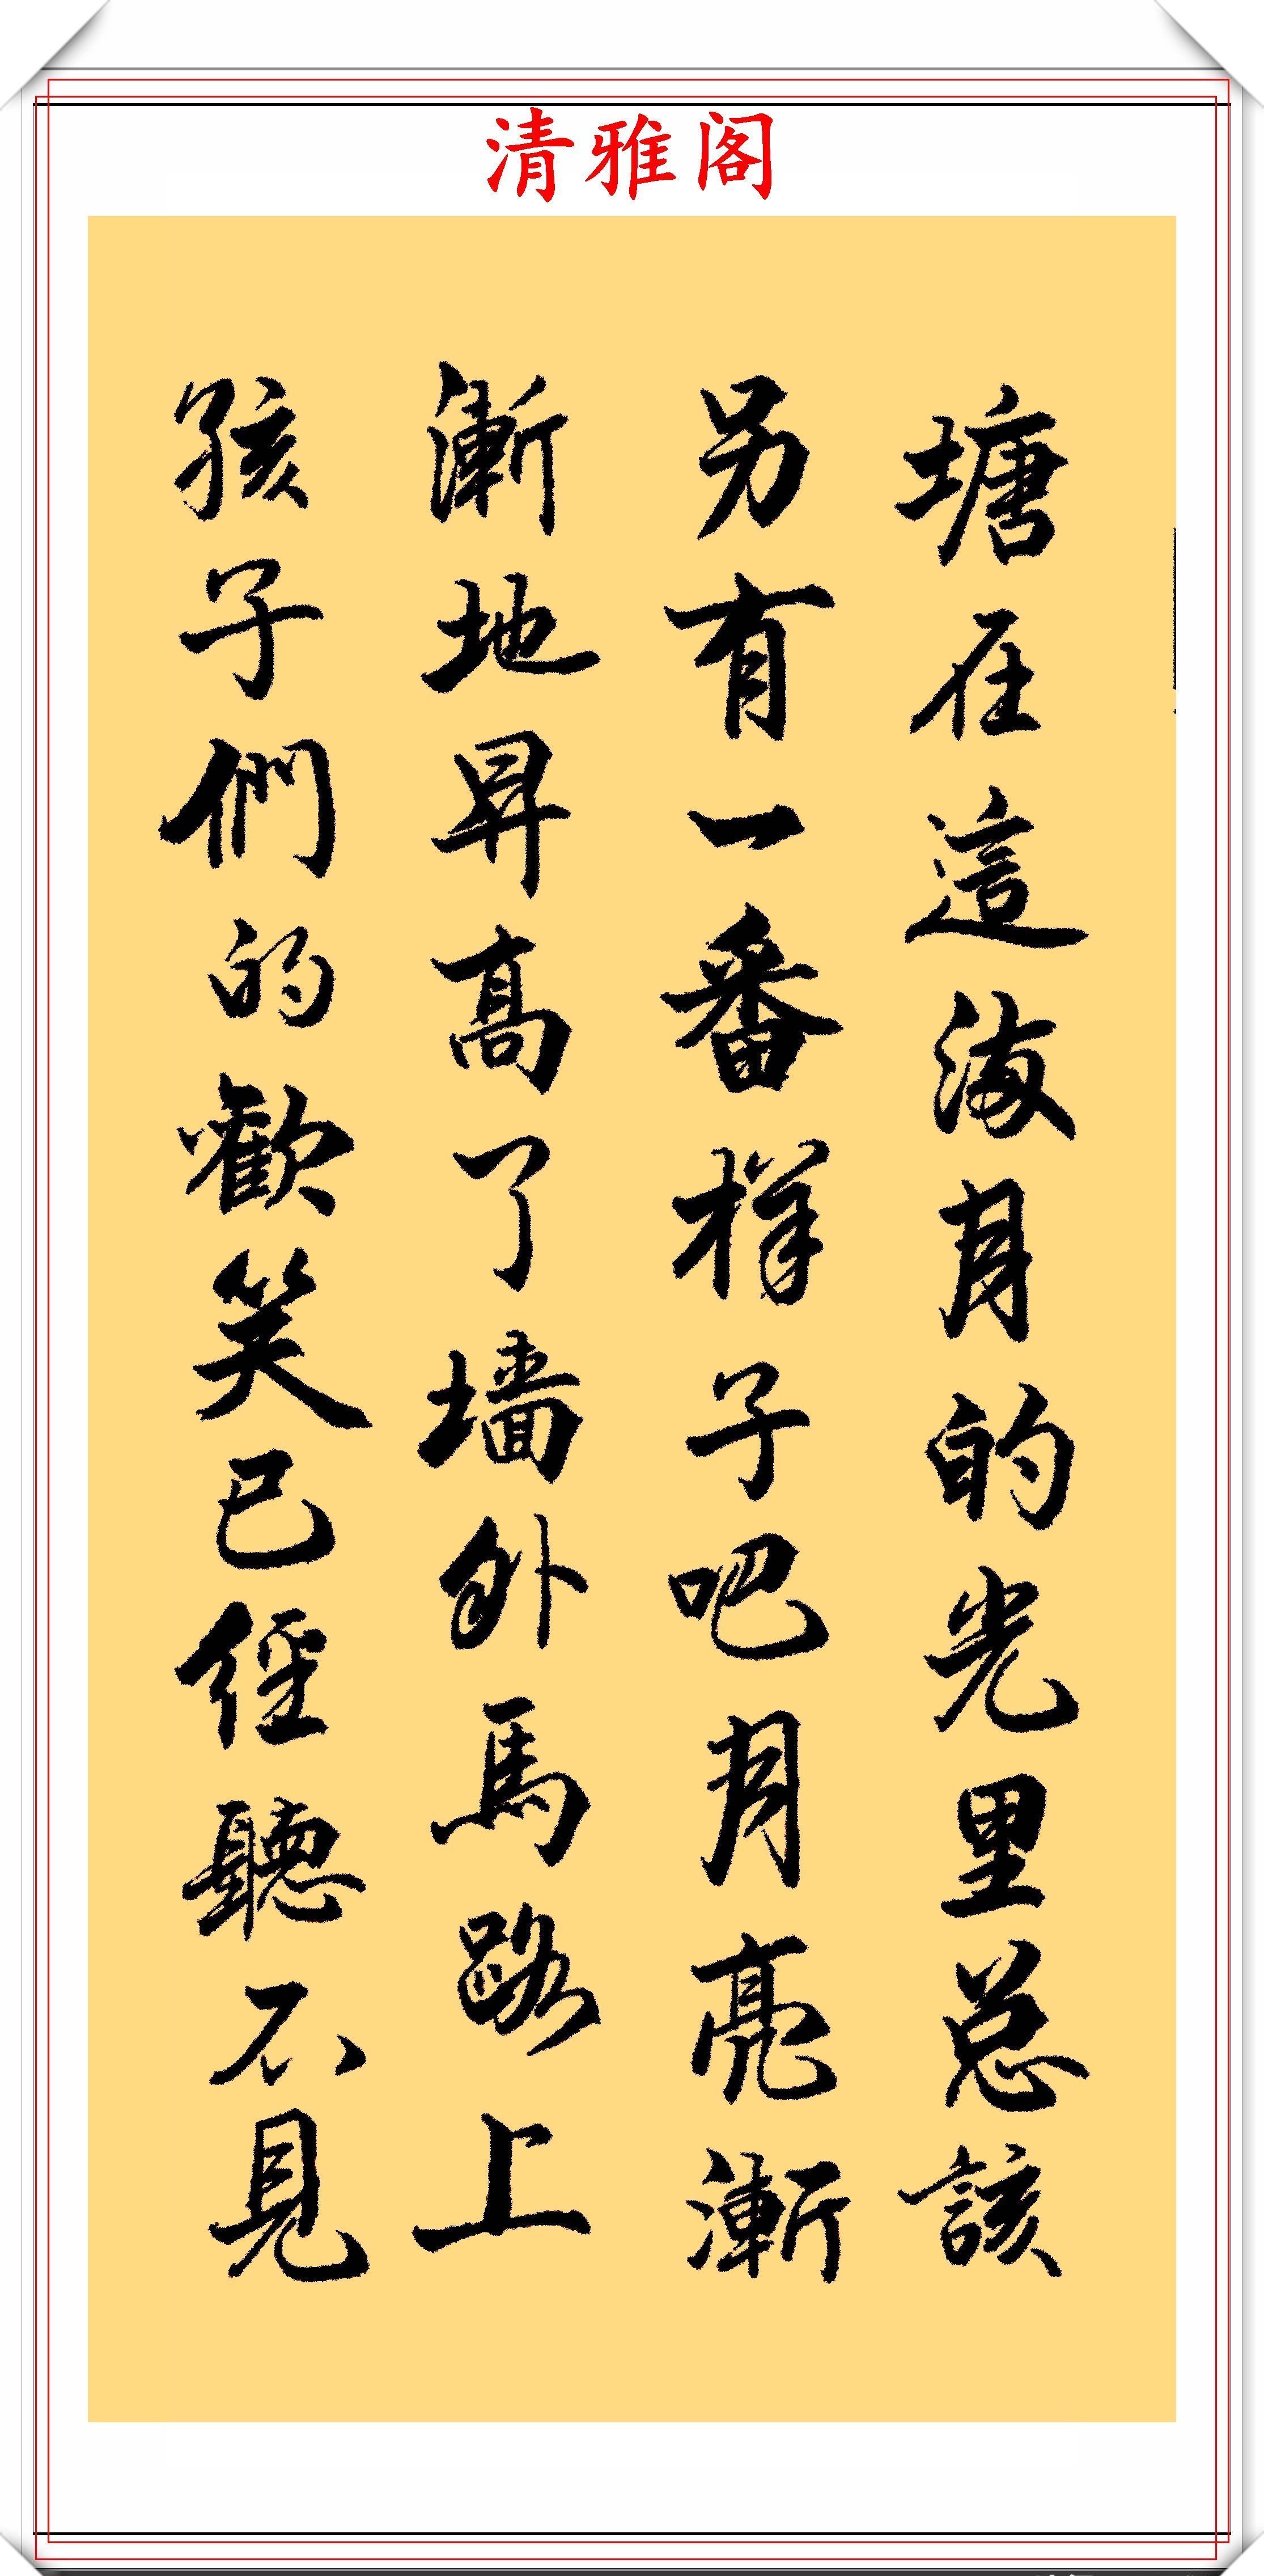 清雅阁
塘在這滿月的光里总該
另有一番样子吧月亮漸
漸地昇高了墙外馬路上
孩子們的歡笑已經聽不見